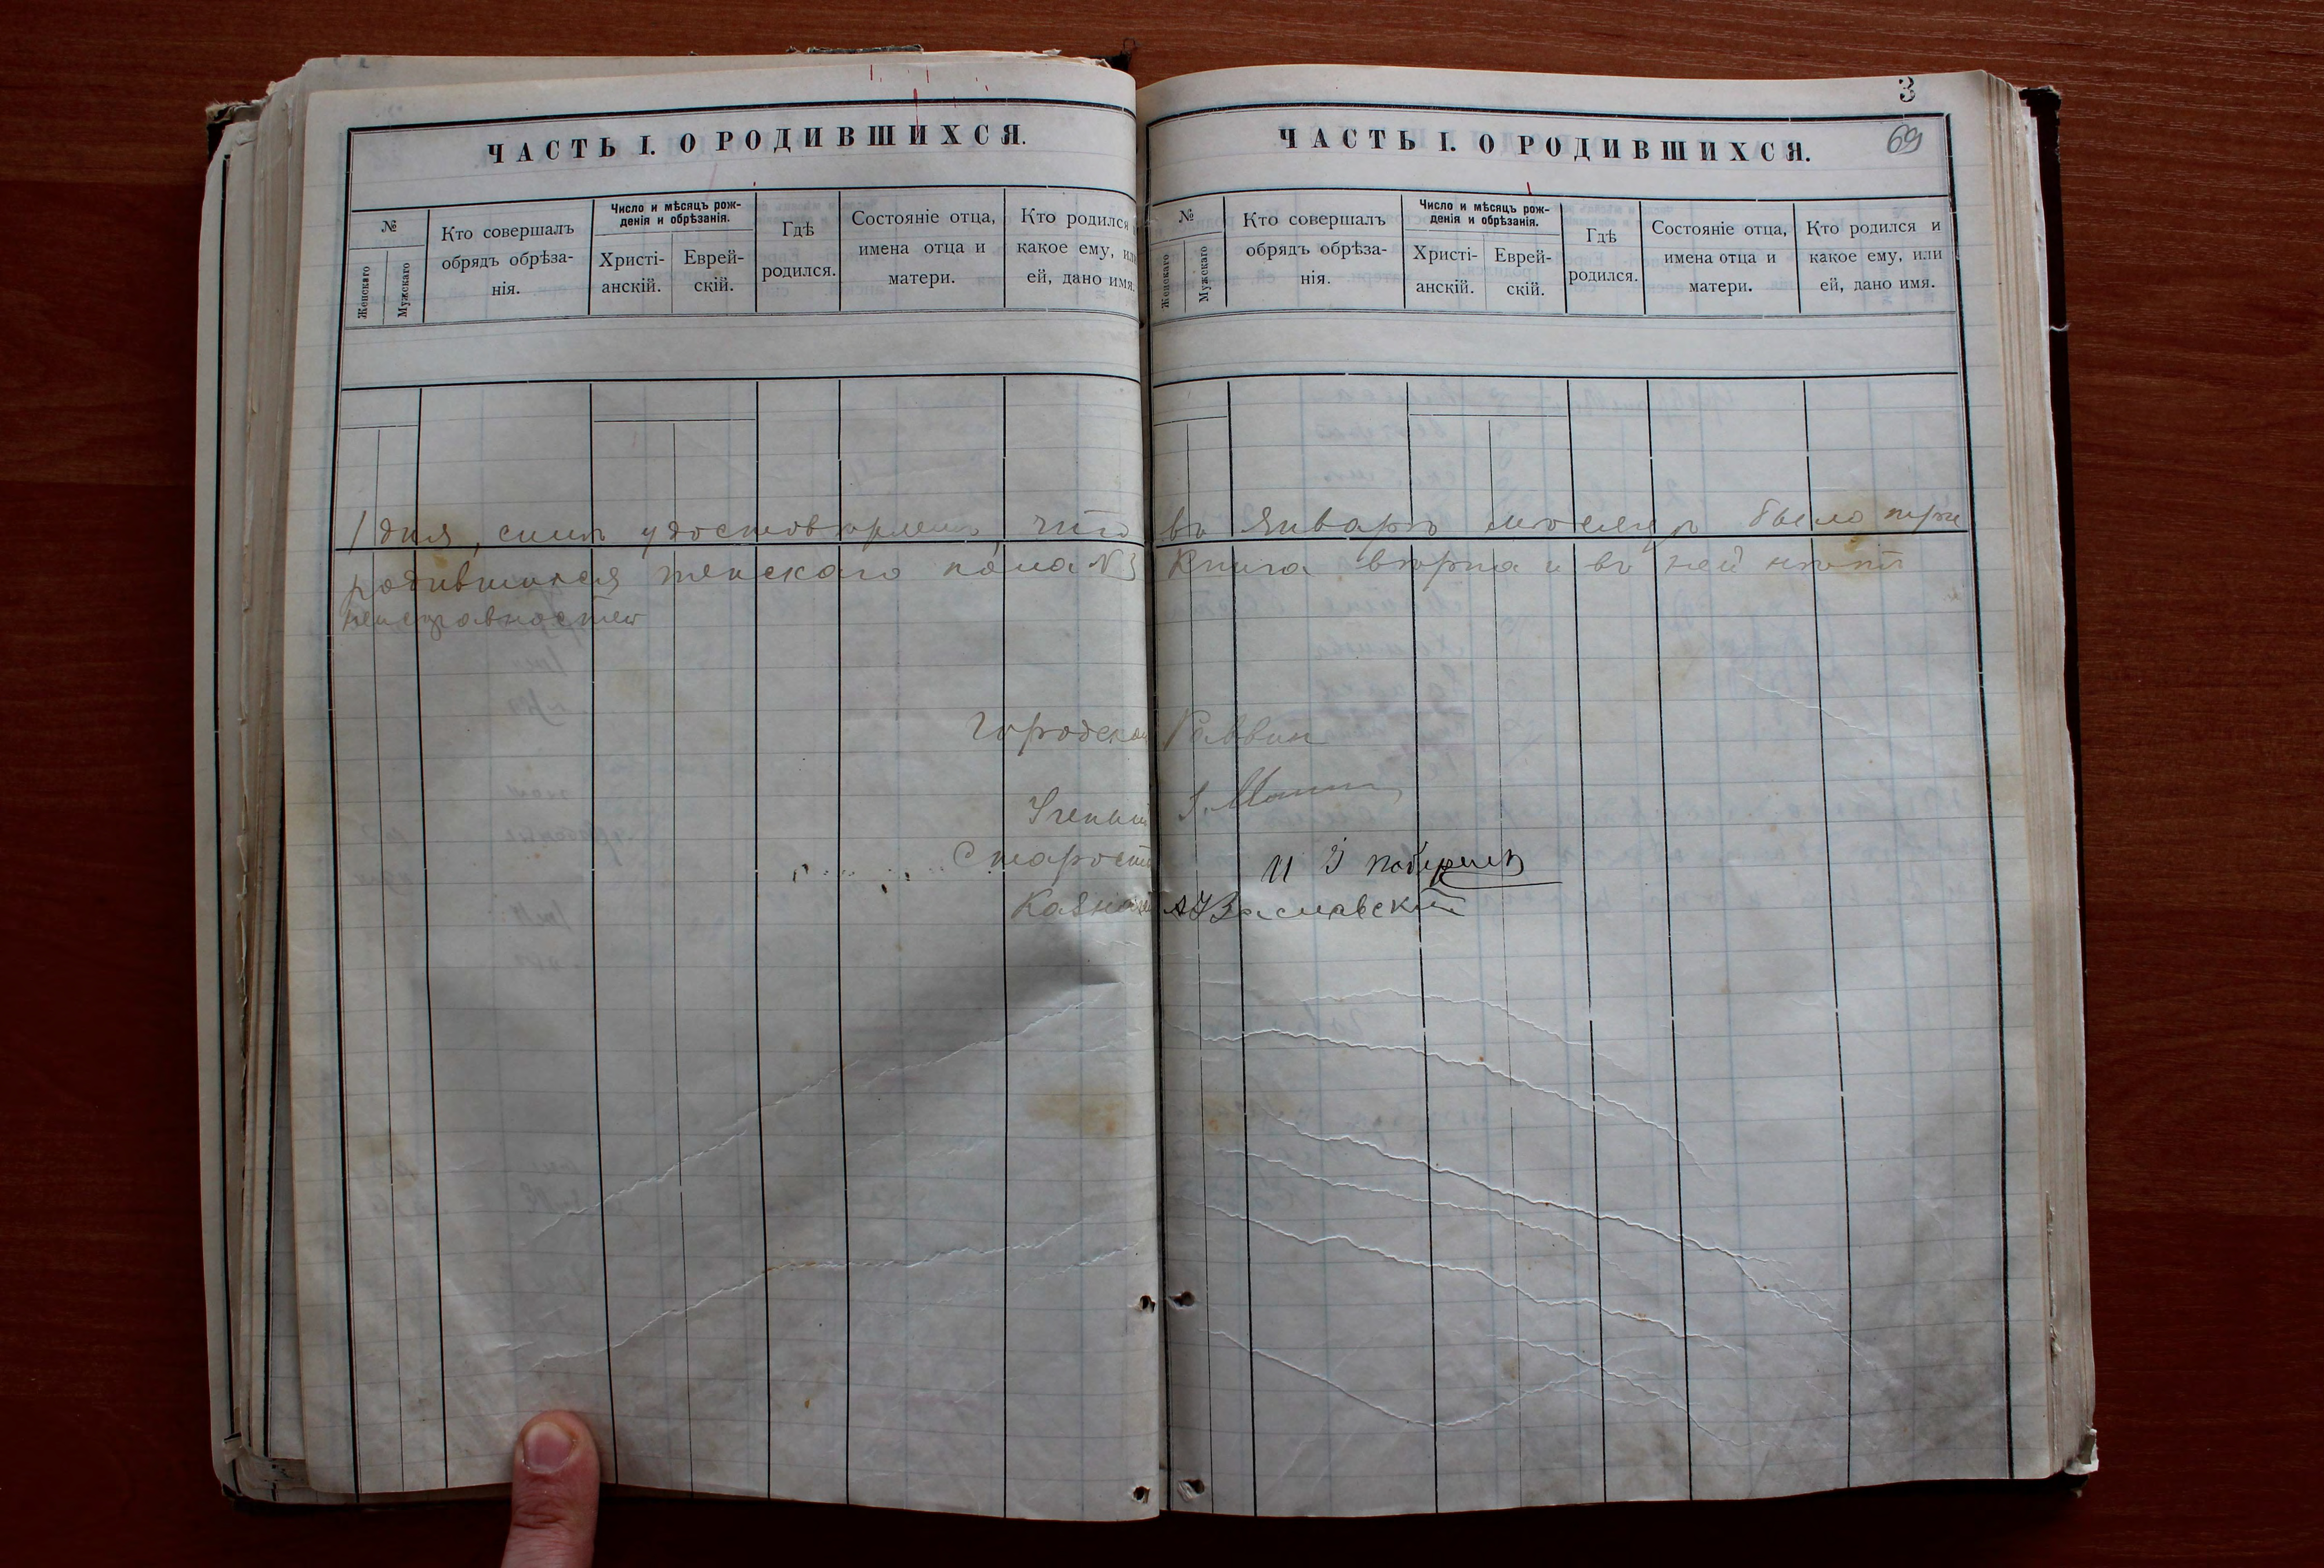 ЧАСТЬ I. О РОДИВШИХСЯ.
№
Женскаго
Мужскаго
Кто совершалъ
обрядъ обрѣза-
нія.
Число и мѣсяцъ рож-
денія и обрѣзанія.
Христі-
анскій.
Еврей-
скій.
Гдѣ
родился.
Состояніе отца,
имена отца и
матери.
Кто родился и
какое ему, или
ей, дано имя.
3
69
ЧАСТЬ I. О РОДИВШИХСЯ.
№
Женскаго
Мужскаго
Кто совершалъ
обрядъ обрѣза-
нія.
Число и мѣсяцъ рож-
денія и обрѣзанія.
Христі-
анскій.
Еврей-
скій.
Гдѣ
родился.
Состояніе отца,
имена отца и
матери.
Кто родился и
какое ему, или
ей, дано имя.
1 дня, симъ удостовѣряемъ, что въ Январѣ мѣсяцѣ было три
родившихся женскаго пола №3 Книга вѣрна и въ ней нѣтъ
неисправностей
Городской Раввин
Ученый
Староста
Казначей Заславский